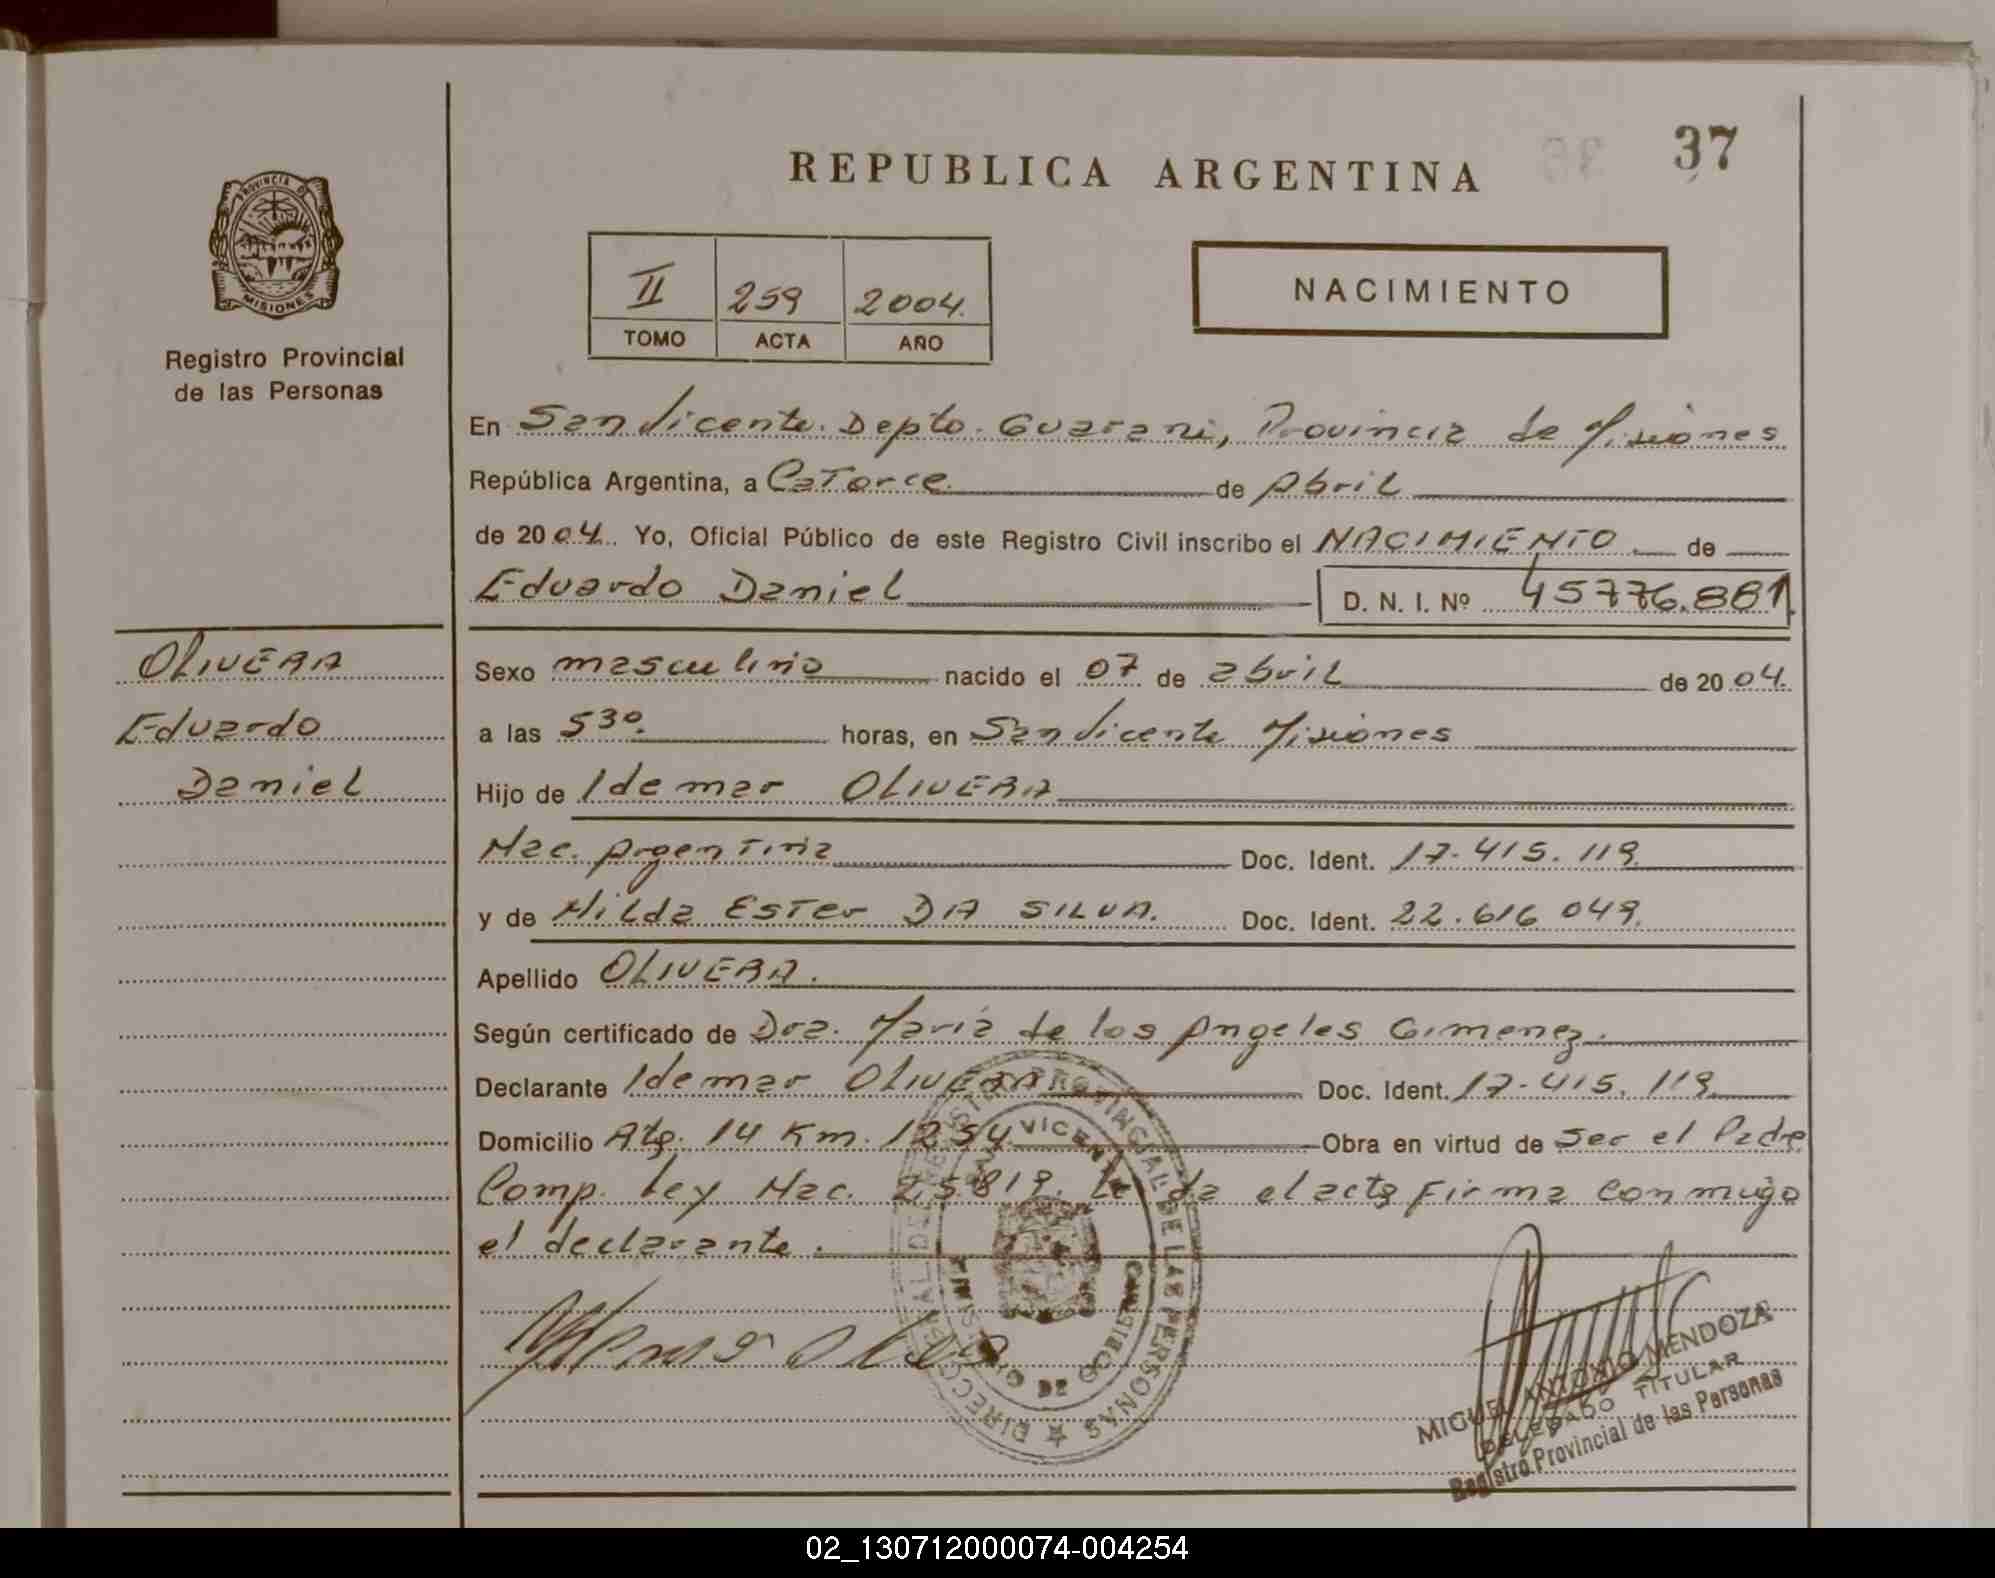 REPUBLICA ARGENTINA
37
PROVINCIA DE
MISIONES
Registro Provincial
de las Personas
II 259 2004.
TOMO ACTA AÑO
NACIMIENTO
En San Vicente. Depto. Guarani, Provincia de Misiones
República Argentina, a Catorce de Abril
de 2004. Yo, Oficial Público de este Registro Civil inscribo el NACIMIENTO de
Eduardo Daniel D. N. I. Nº 45776.881
OLIVERA
Eduardo
Daniel
Sexo masculino nacido el 07 de abril de 2004.
a las 530. horas, en San Vicente Misiones
Hijo de Idemar OLIVERA
Nac. Argentina Doc. Ident. 17.415.119
y de Nilda Ester DA SILVA. Doc. Ident. 22.616 049.
Apellido OLIVERA.
Según certificado de Dra. María de los Angeles Gimenez.
Declarante Idemar OLIVERA Doc. Ident. 17.415.119
Domicilio Km. 1254 Obra en virtud de ser el Padre
Comp. Ley Nac. 25819. Leída el acta firma conmigo
el declarante.
DIRECCION REGISTRO PROVINCIAL DE LAS PERSONAS
SAN VICENTE
MINISTERIO DE GOBIERNO
MIGUEL ANTONIO MENDOZA
DELEGADO TITULAR
Registro Provincial de las Personas
02_130712000074-004254